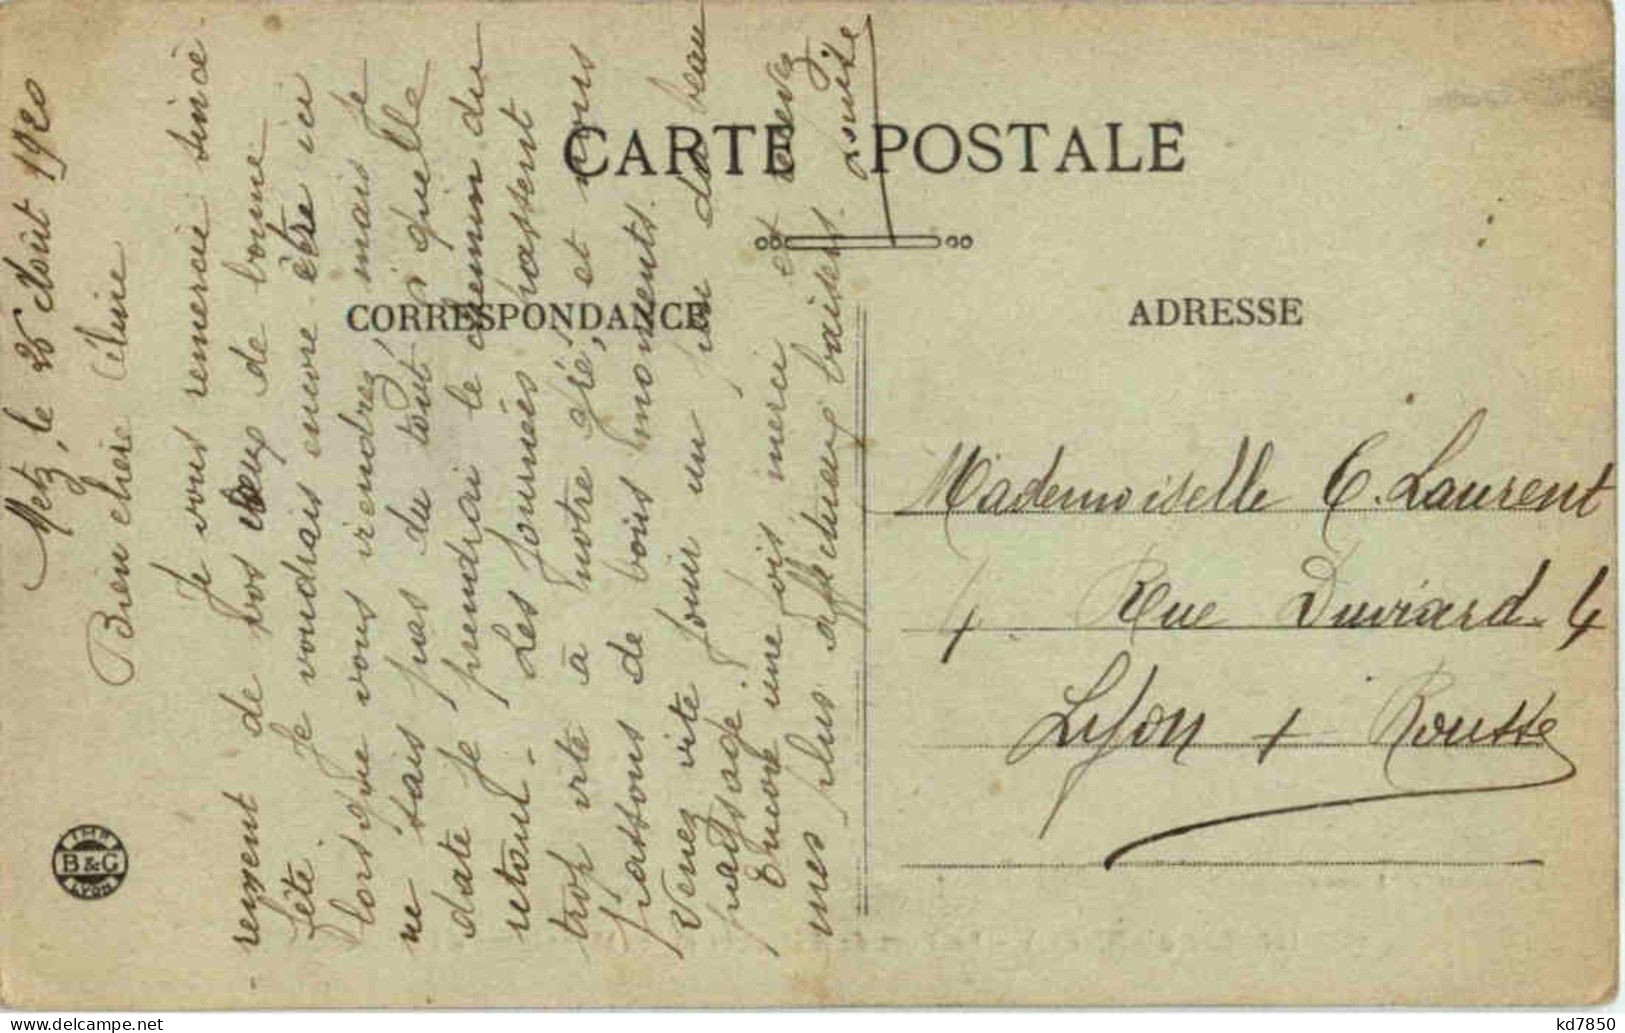 CARTE POSTALE
CORRESPONDANCE
ADRESSE
Metz, le 26 Août 1920
Bien chère Céline
Je vous remercie sincè
-rement de vos vœux de bonne
fête. Je voudrais encore être ici
lorsque vous viendrez, mais je
ne sais pas du tout à quelle
date je prendrai le chemin du
retour. Les journées passent
trop vite à notre gré, et nous
passons de bons moments.
Venez vite jouir un peu du beau
paysage.
Encore une fois merci et recevez
mes plus affectueux baisers.
Mademoiselle C. Laurent
4. Rue Duviard. 4
Lyon + Rousse
IMP
B & G
LYON
kd7850